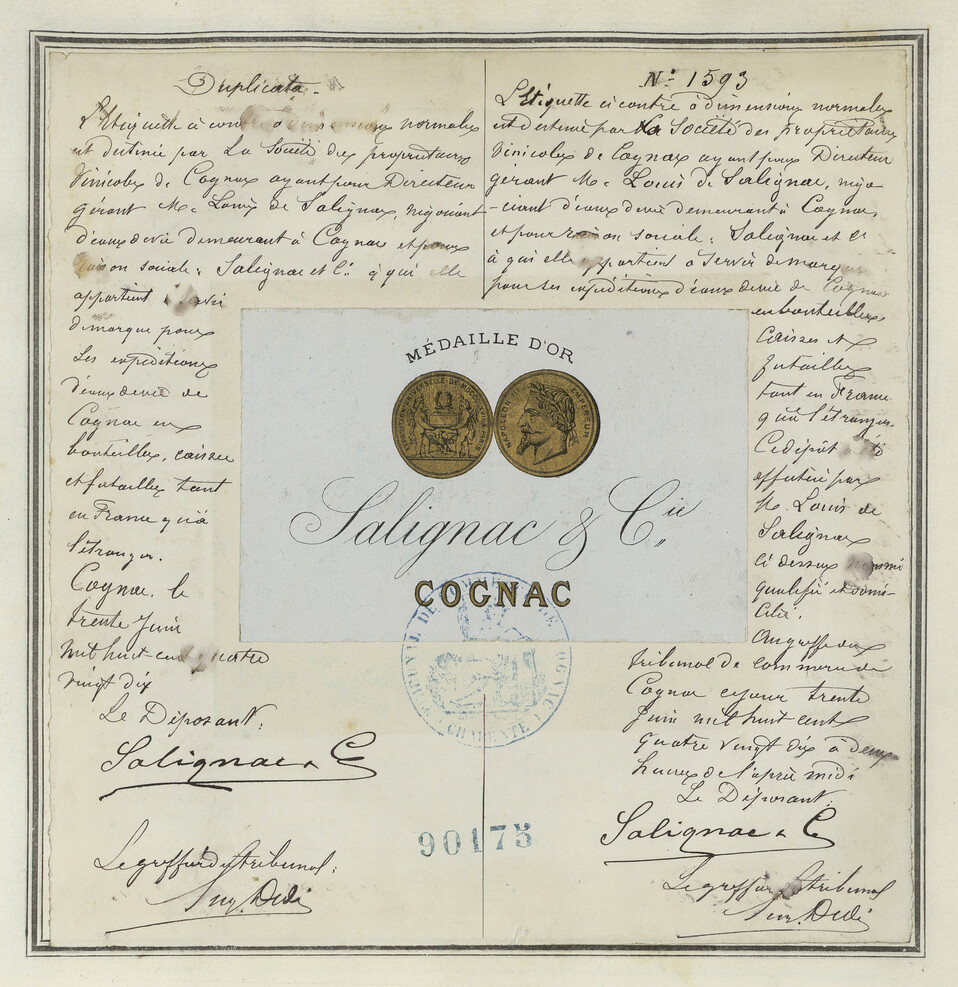 Duplicata.
L'Etiquette ci contre à dimensions normales
est destinée par La Société des propriétaires
Vinicoles de Cognac ayant pour Directeur
gérant Mr. Louis de Salignac, négociant
d'eaux de vie demeurant à Cognac et pour
raison sociale: Salignac et Cie. à qui elle
appartient à servir
de marque pour
ses expéditions
d'eaux de vie de
Cognac en
bouteilles, caisses
et futailles tant
en France qu'à
l'étranger.
Cognac, le
trente Juin
mil huit cent quatre
vingt dix
Le Déposant:
Salignac & Cie
Le greffier du tribunal:
No. 1593
L'Etiquette ci contre à dimensions normales
est destinée par La Société des propriétaires
Vinicoles de Cognac ayant pour Directeur
gérant Mr. Louis de Salignac, négo-
-ciant d'eaux de vie demeurant à Cognac,
et pour raison sociale: Salignac et Cie
à qui elle appartient à servir de marque
pour ses expéditions d'eaux de vie de Cognac
en bouteilles
caisses et
futailles
tant en France
qu'à l'étranger.
Ce dépôt a été
effectué par
M. Louis de
Salignac
ci dessus nommé
qualifié et domi-
cilié.
Au greffe du
tribunal de commerce de
Cognac ce jour trente
Juin mil huit cent
quatre vingt dix à deux
heures de l'après midi
Le Déposant:
Salignac & Cie
Le greffier du tribunal
MÉDAILLE D'OR
EXPOSITION UNIVERSELLE DE MDCCCLXVII A PARIS
NAPOLEON III EMPEREUR
Salignac & Cie
COGNAC
TRIBUNAL DE COMMERCE DE COGNAC
(CHARENTE)
90175